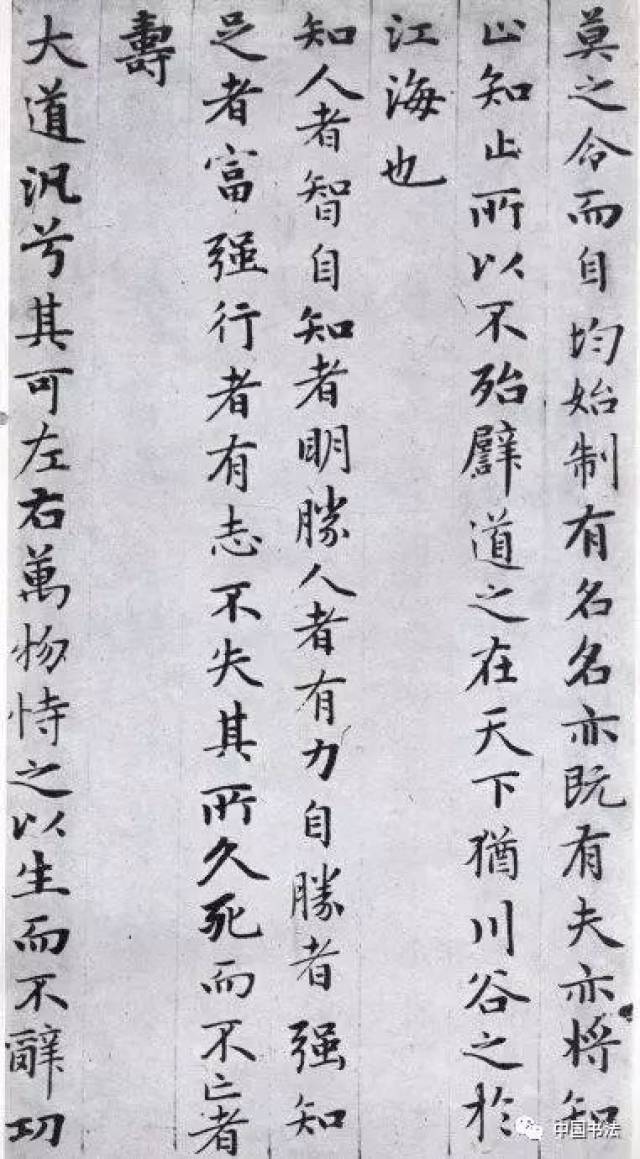 莫之令而自均始制有名名亦既有夫亦將知
止知止所以不殆譬道之在天下猶川谷之於
江海也
知人者智自知者明勝人者有力自勝者强知
足者富强行者有志不失其所久死而不亡者
壽
大道汎兮其可左右萬物恃之以生而不辭功
中国书法